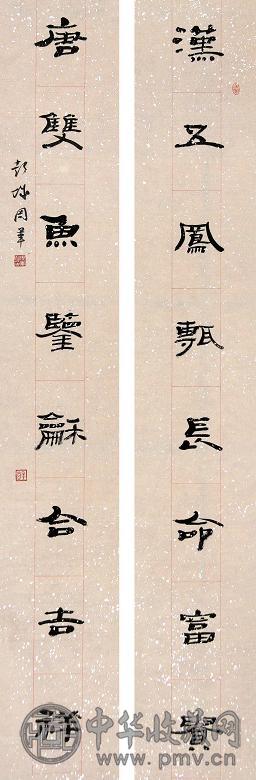 漢五鳳甎長命富貴
唐雙魚鑒龢合吉祥
中华收藏网
www.pmv.cn